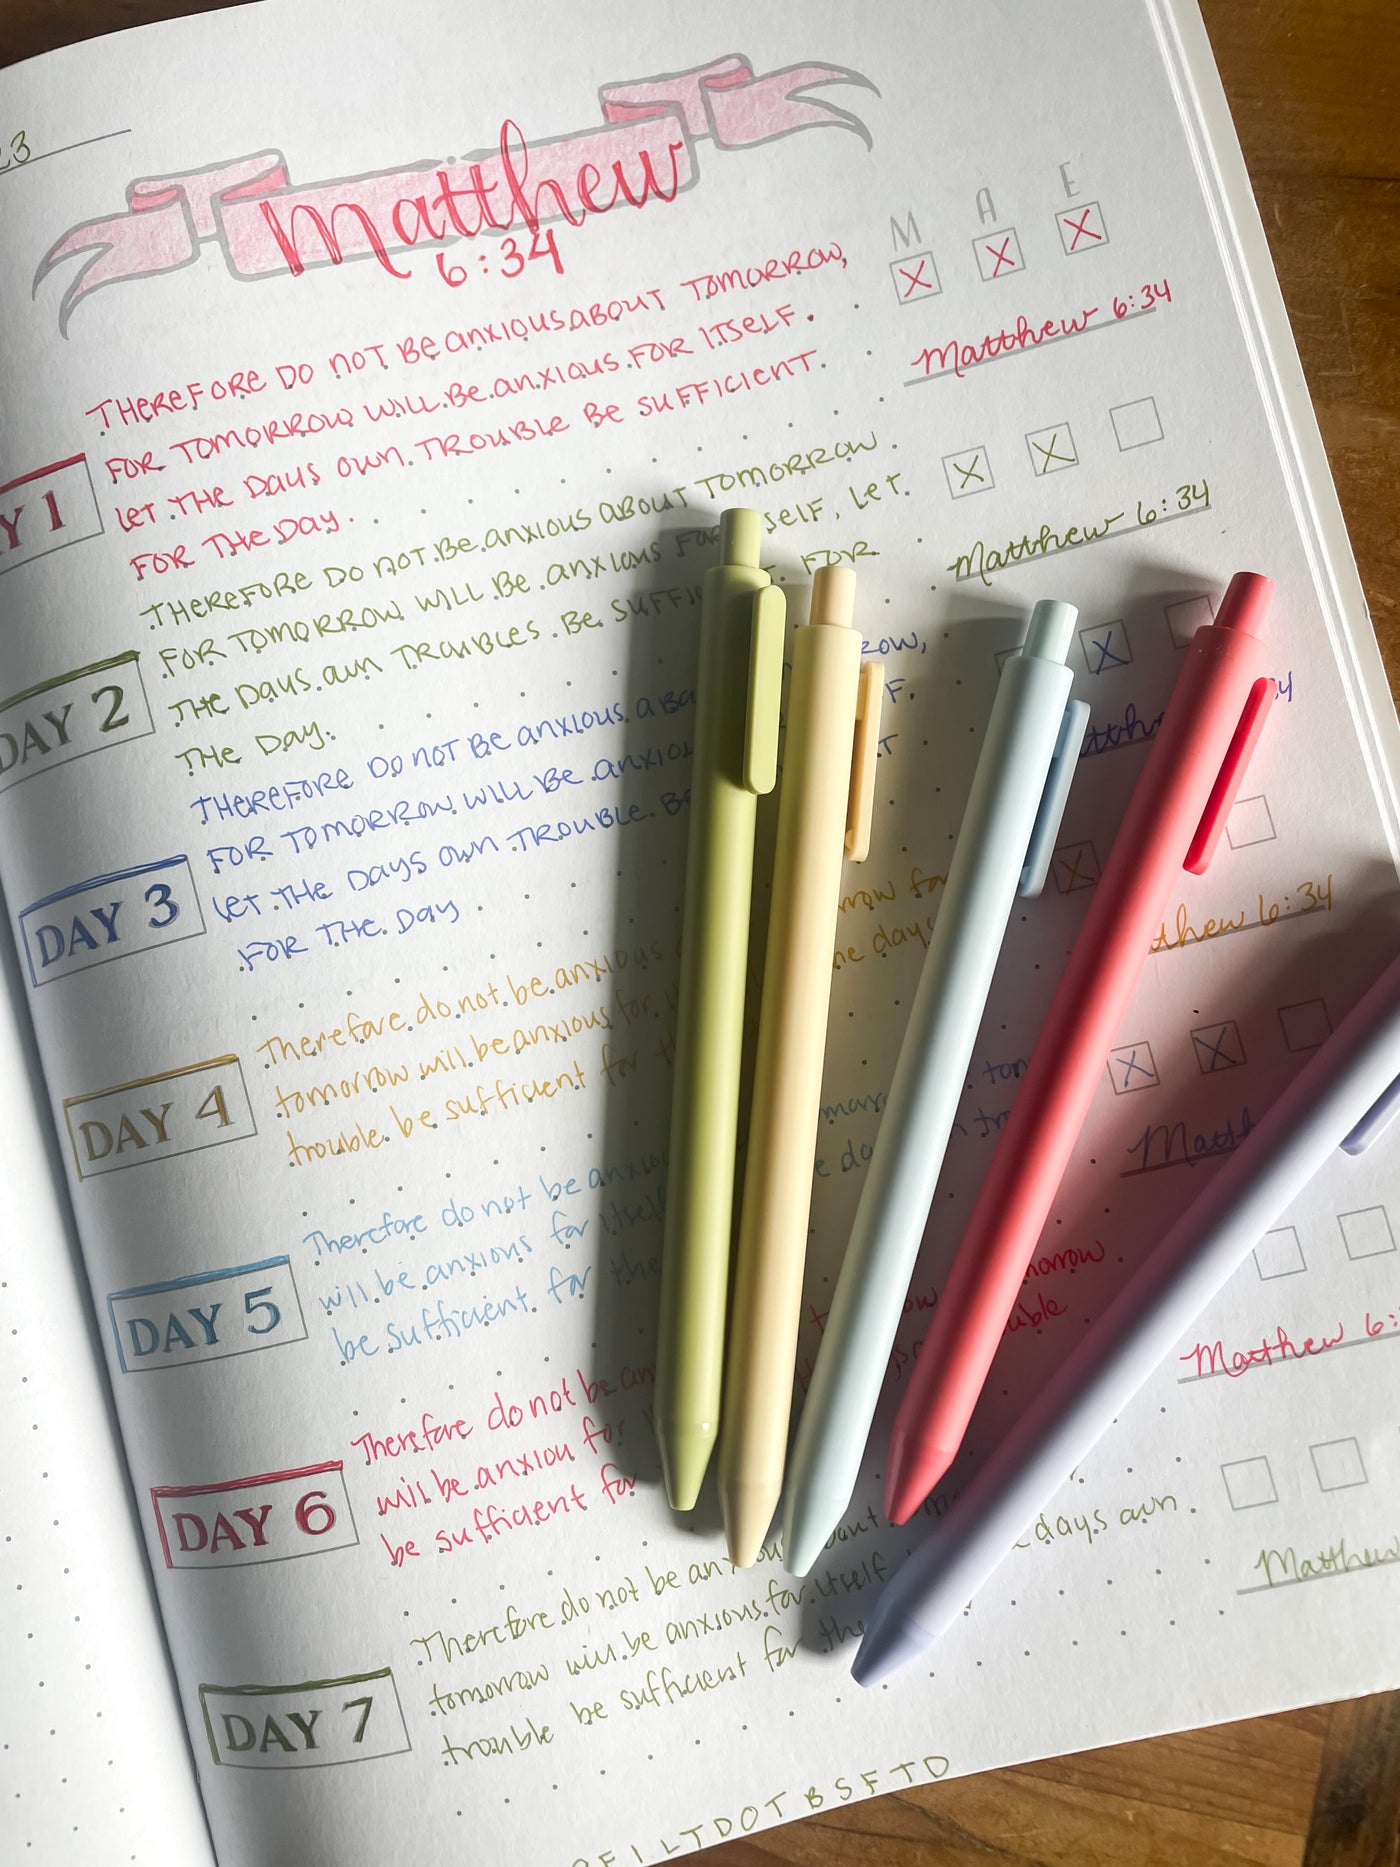 23
Matthew
6:34
M A E
X X X
THEREFORE DO NOT BE anxious ABOUT TOMORROW,
FOR TOMORROW WILL BE anxious FOR ITSELF.
LET THE DAYS OWN TROUBLE BE SUFFICIENT.
FOR THE DAY.
Matthew 6:34
Y 1
THEREFORE DO NOT BE anxious ABOUT TOMORROW.
FOR TOMORROW WILL BE anxious FOR SELF, LET
THE DAYS own TROUBLES BE SUFFIC FOR
THE DAY.
X X
Matthew 6:34
DAY 2
THEREFORE DO NOT BE anxious ABO ROW,
FOR TOMORROW WILL BE anxiou F.
LET THE DAYS OWN TROUBLE. BE T
FOR THE DAY
X
atth 34
DAY 3
Therefore do not be anxious rrow for
tomorrow will be anxious for he days
trouble be sufficient for th
X
thew 6:34
DAY 4
Therefore do not be anxiou tom
will be anxious for itself
be sufficient for the
X X
Matt
DAY 5
Therefore do not be an morrow
will be anxiou for
be sufficient for
Matthew 6:
DAY 6
Therefore do not be anx
tomorrow will be anxious for itself days own
trouble be sufficient for the
Matthew
DAY 7
F I L T D O T B S F T D